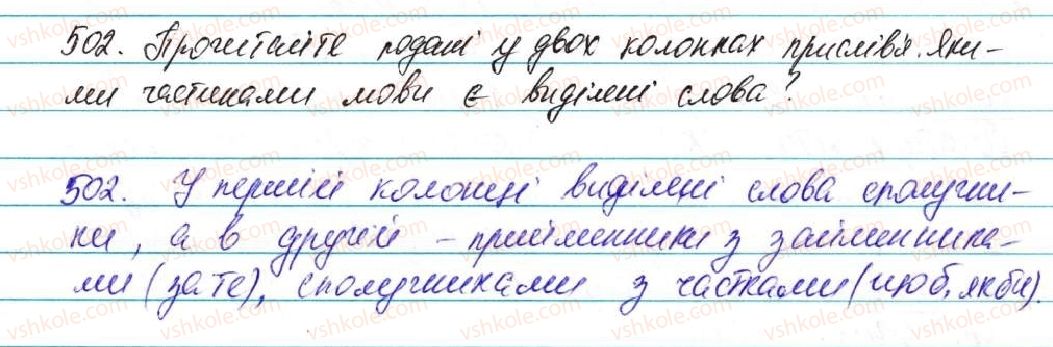 502. Прочитайте подані у двох колонках прислів'я. Яки-
ми частинами мови є виділені слова?
502. У першій колонці виділені слова сполучни-
ки, а в другій - прийменники з займенника-
ми (за те), сполучниками з частками (що б, як би).